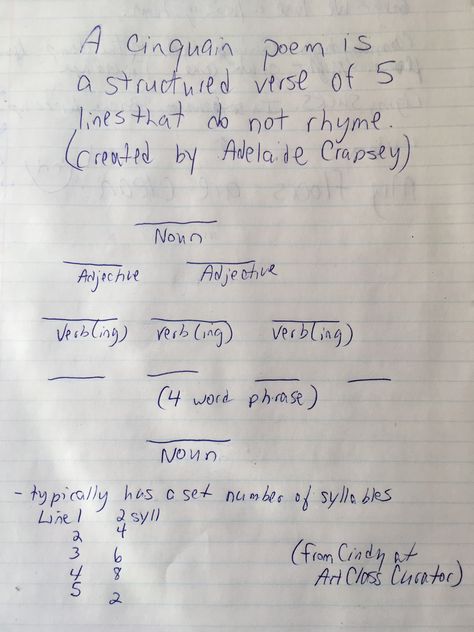 A cinquain poem is
a structured verse of 5
lines that do not rhyme.
(created by Adelaide Crapsey)
Noun
Adjective Adjective
Verb(ing) verb(ing) verb(ing)
(4 word phrase)
Noun
- typically has a set number of syllables
Line 1 2 syll
2 4
3 6
4 8
5 2
(from Cindy at
Art Class Curator)